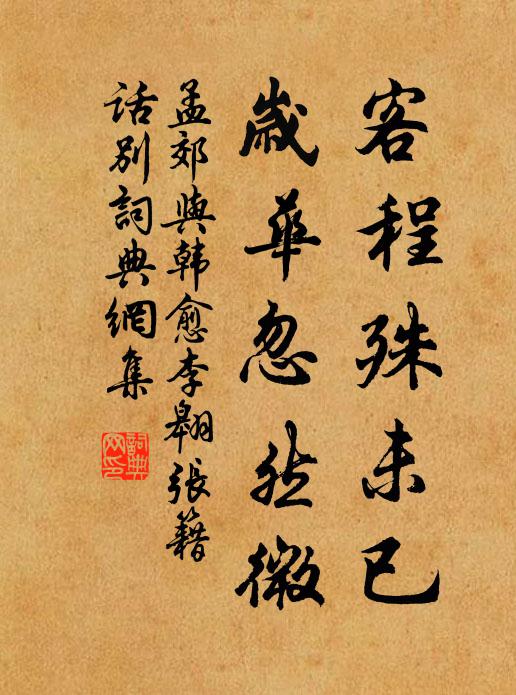 客程殊未已
歲華忽然微
孟郊與韩愈李翱張籍
话别詞典網集
詞典
网印